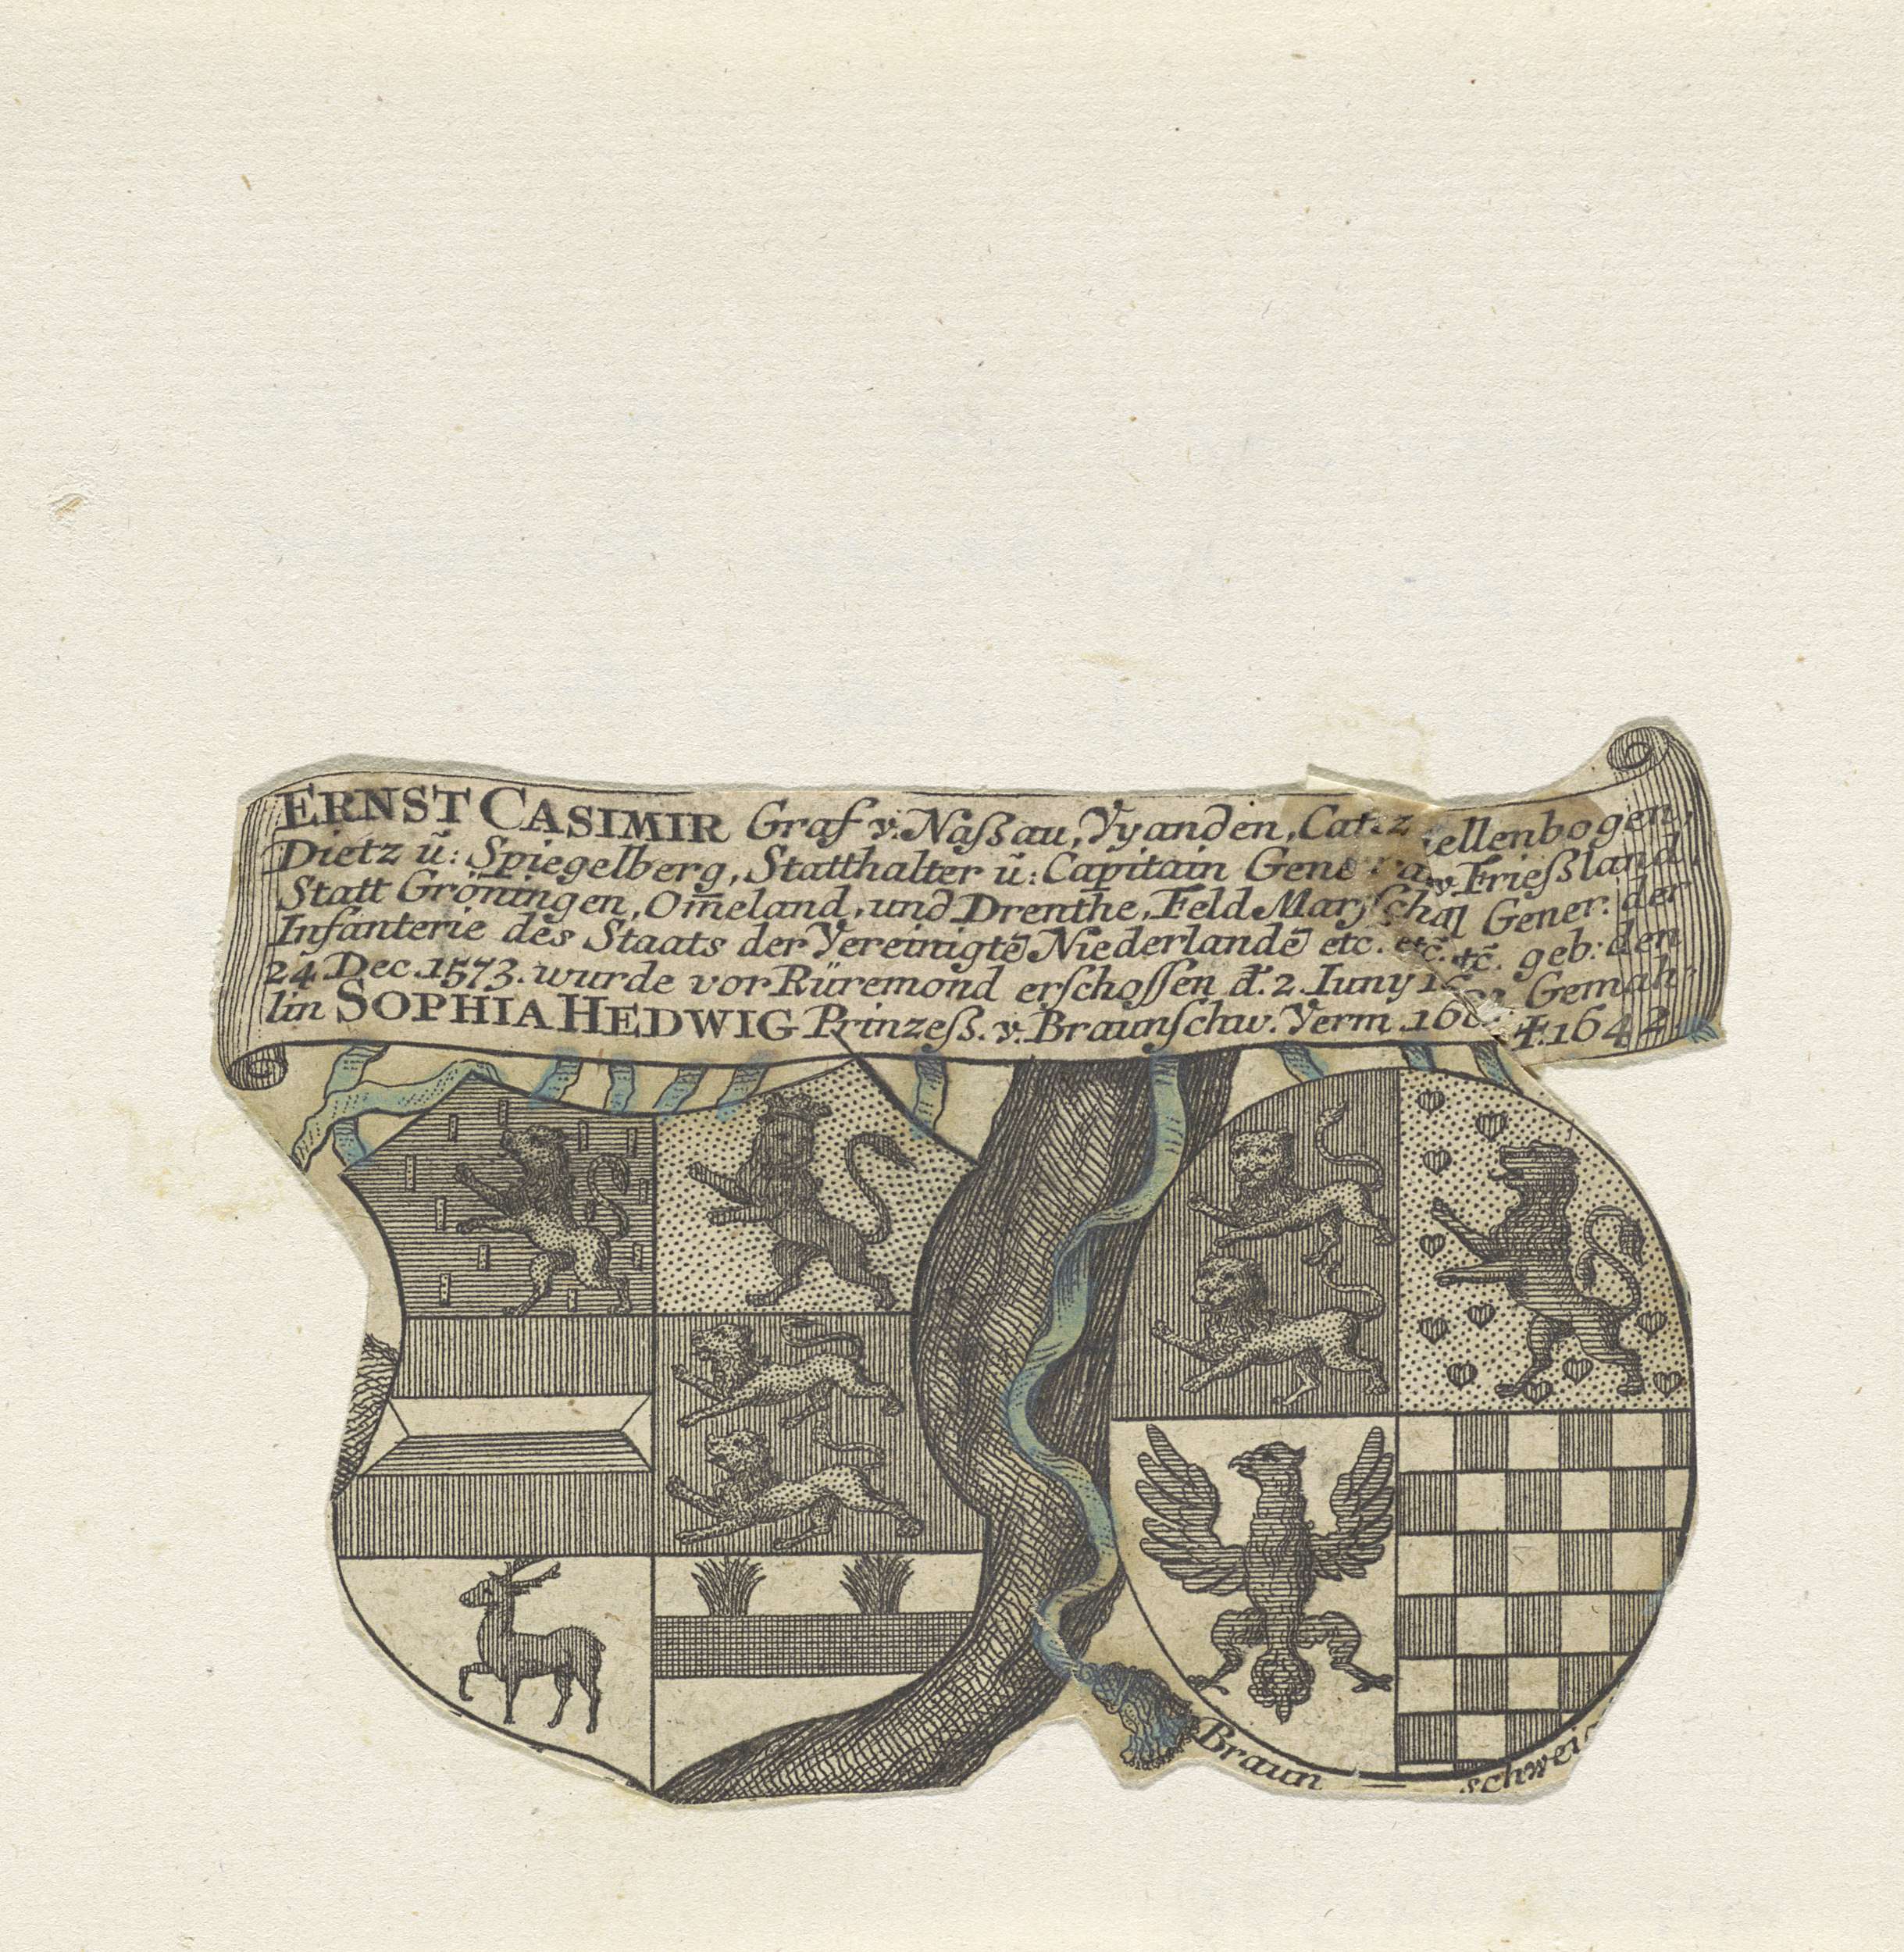 ERNST CASIMIR Graf v. Naßau, Vyanden, Catz ellenbogen,
Dietz ũ: Spiegelberg, Statthalter ũ: Capitain Gene a v. Frießland,
Statt Gröningen, Om̃eland, und Drenthe, Feld Marſchal Gener: der
Infanterie des Staats der Vereinigtē Niederlandē etc. etc. etc. geb: den
24 Dec. 1573. wurde vor Rüremond erſchoſſen d. 2. Iuny Gemah-
lin SOPHIA HEDWIG Prinzeß. v. Braunſchw. Verm. 1642
Braun schwei